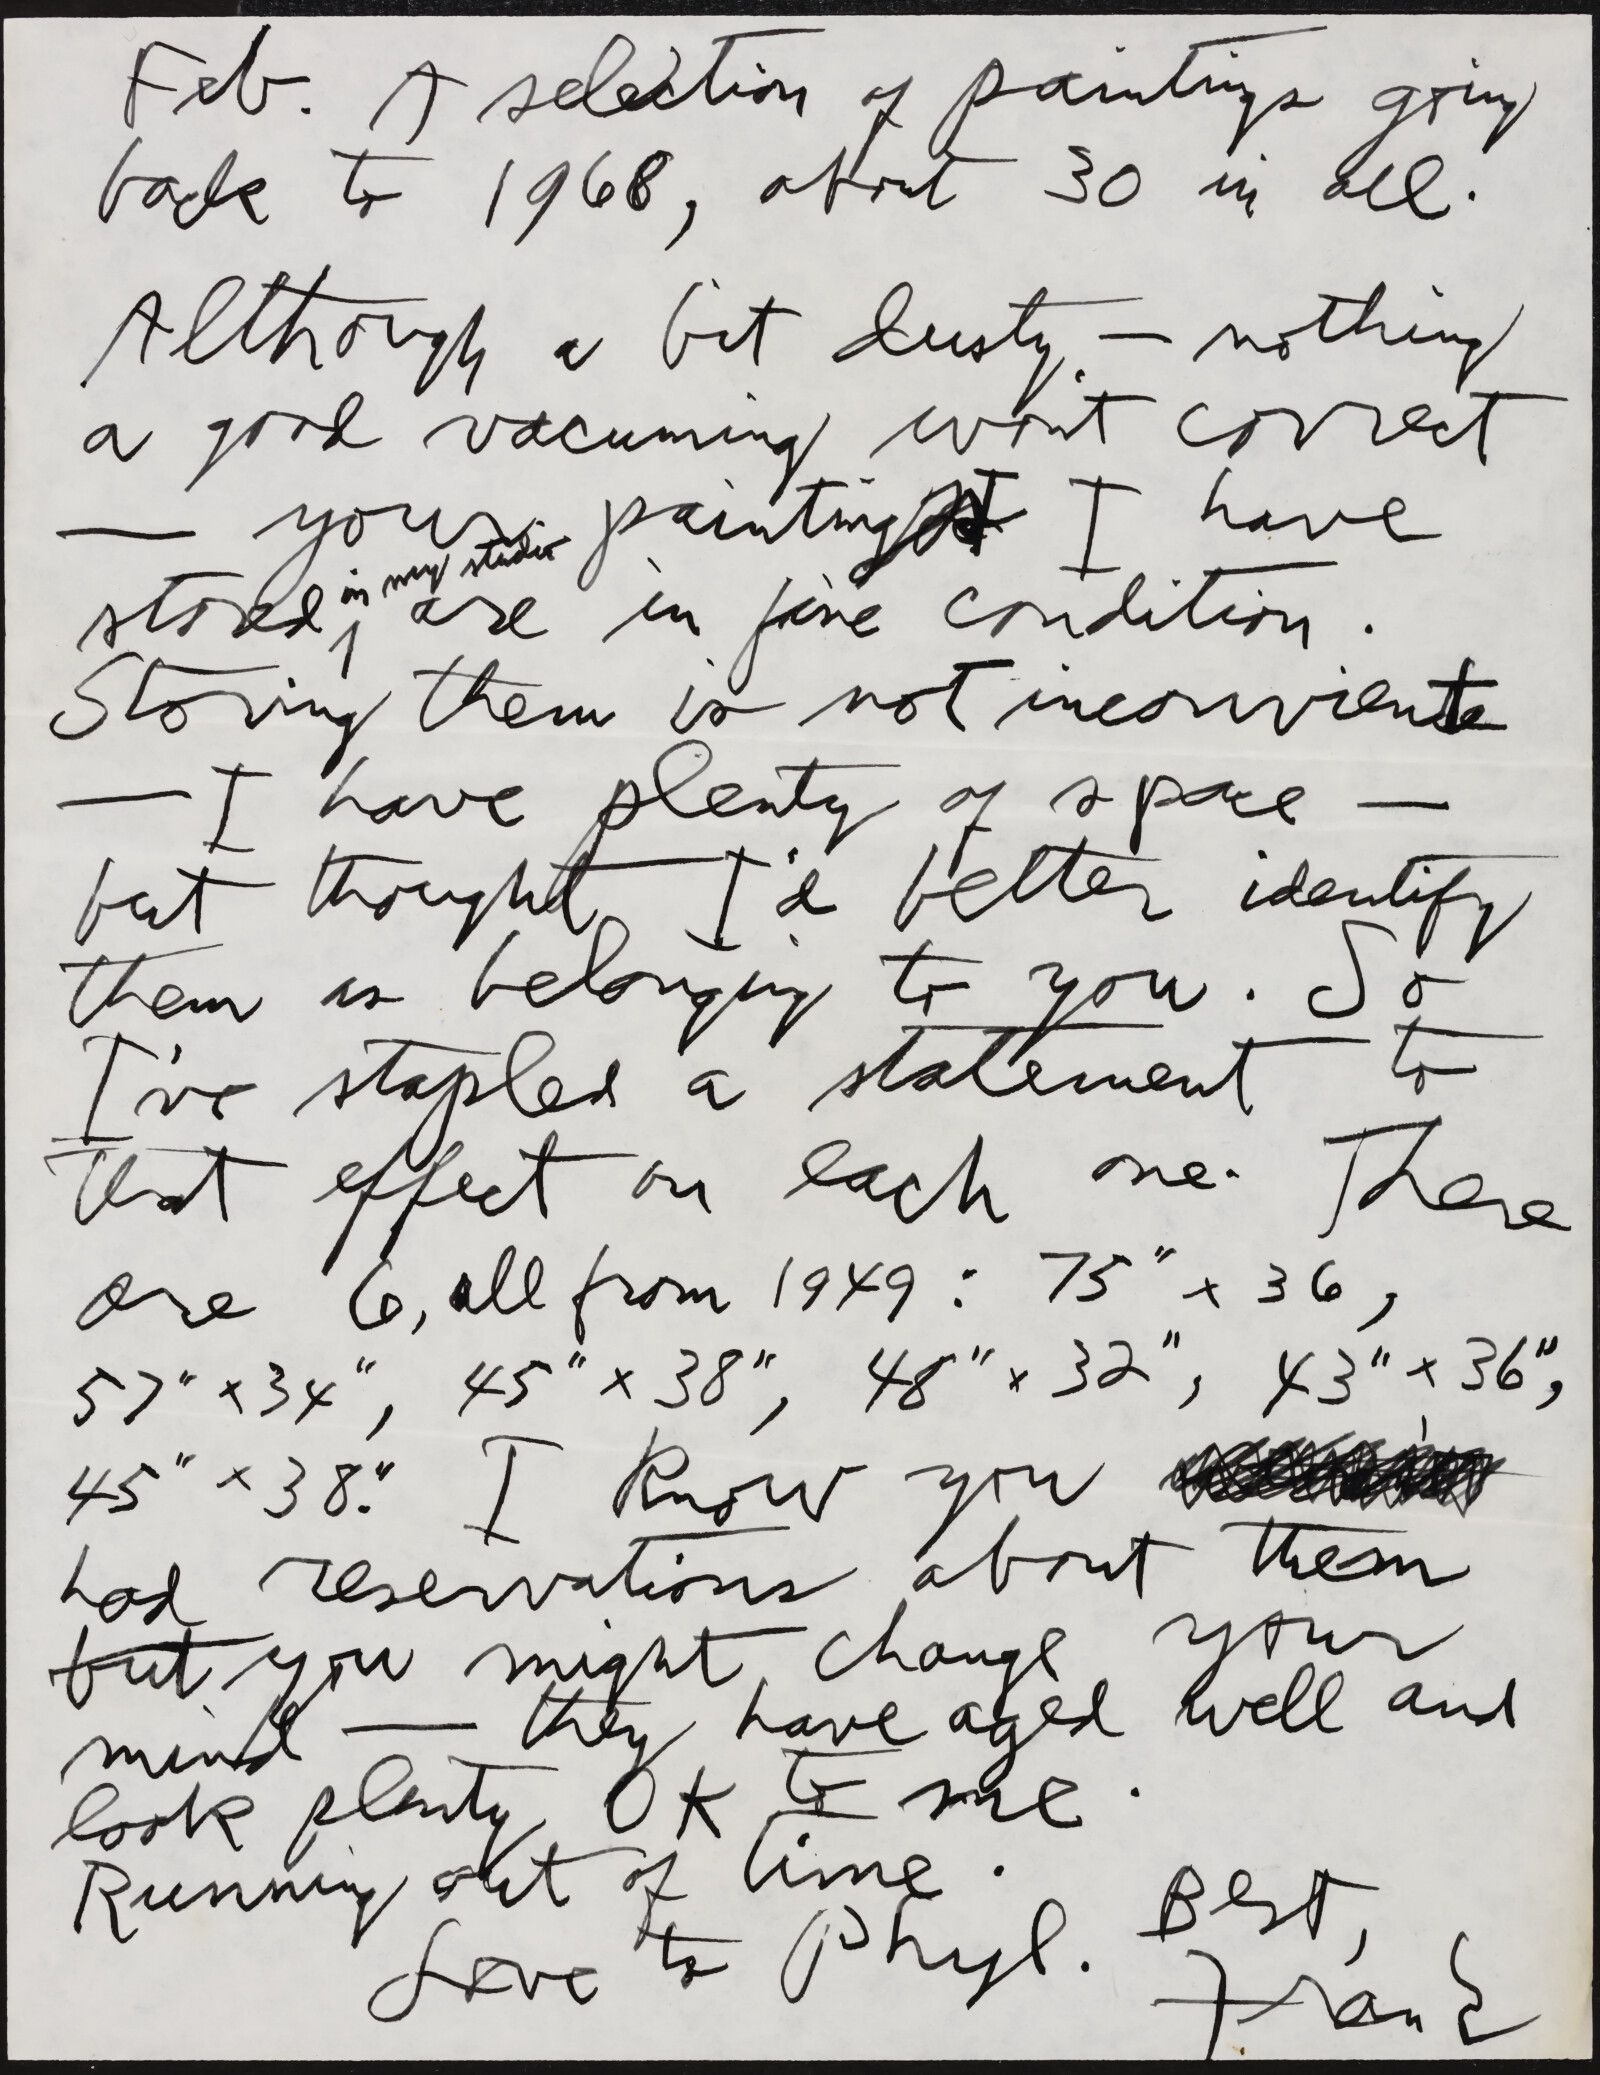 Feb. A selection of paintings going
back to 1968, about 30 in all.
Although a bit dusty — nothing
a good vacuming won't correct
— your paintings I have
stored in my studio are in fine condition.
Storing them is not inconvient
— I have plenty of space —
but thought I'd better identify
them as belonging to you. So
I've stapled a statement to
that effect on each one. There
are 6, all from 1949: 75" x 36,
57" x 34", 45" x 38", 48" x 32", 43" x 36",
45" x 38". I know you
had reservations about them
but you might change your
mind — they have aged well and
look plenty OK to me.
Running out of time.
Best,
Love to Phyl.
Frank